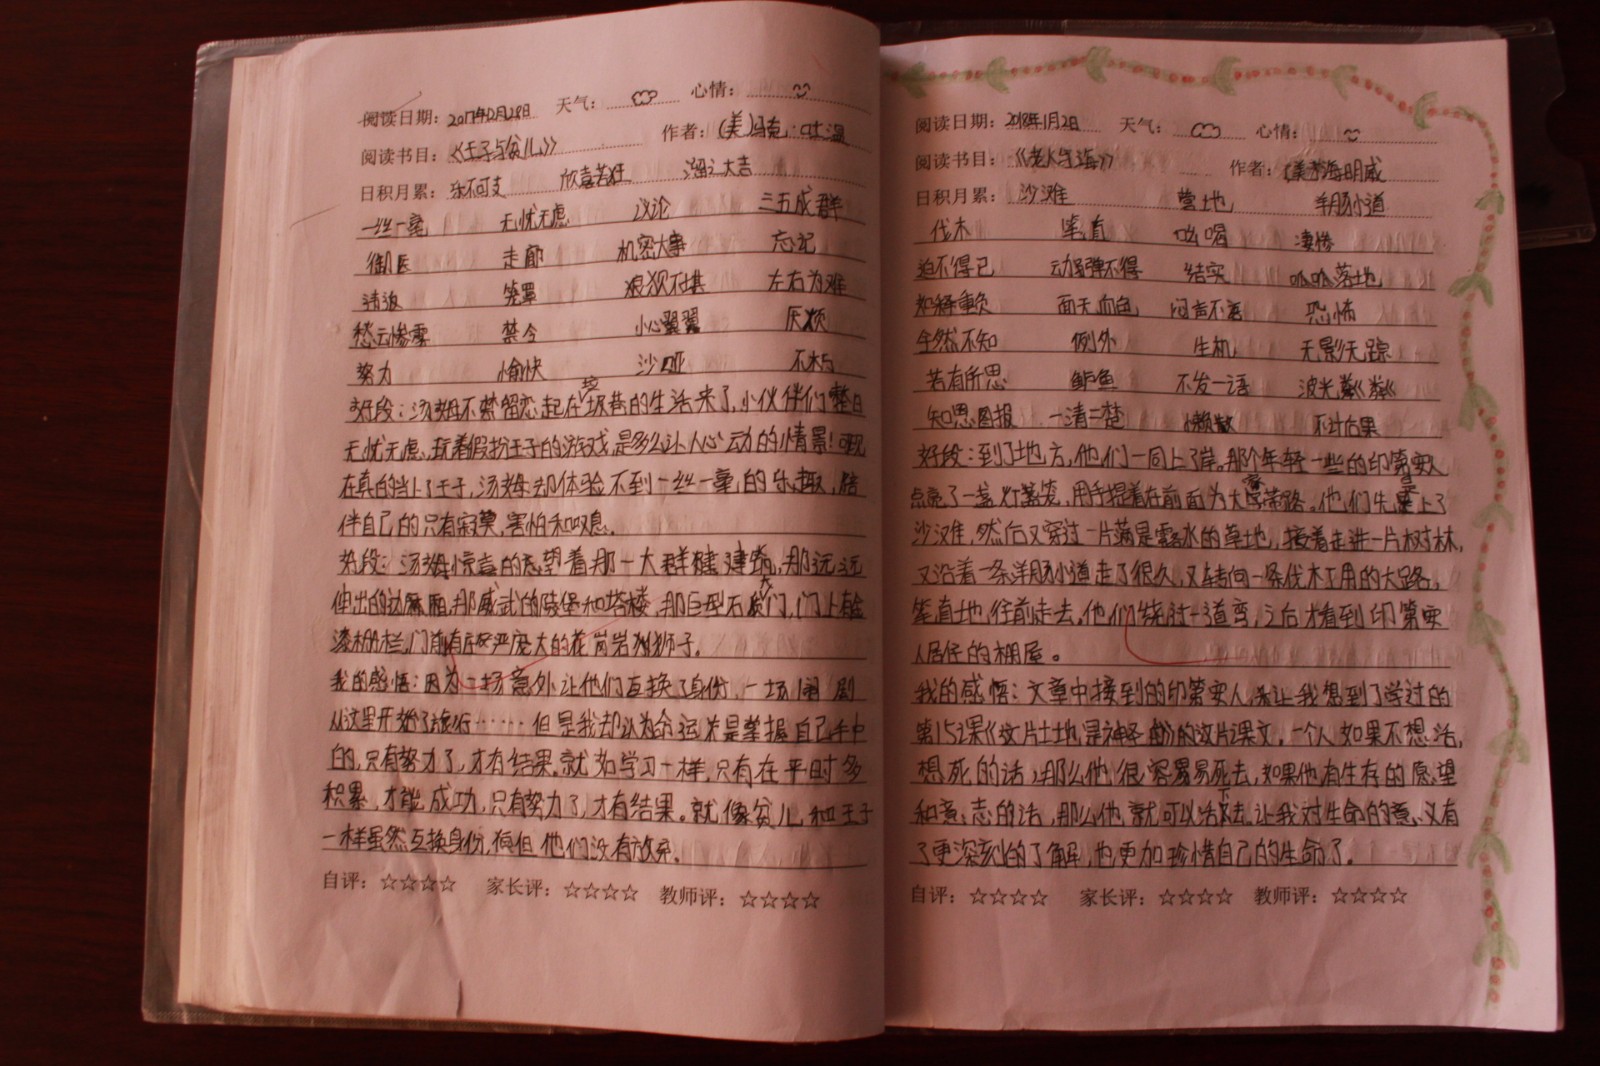 阅读日期：2017年12月28日 天气： 心情：
阅读书目：《王子与贫儿》 作者：（美）马克·吐温
日积月累：乐不可支 欣喜若狂 溜之大吉
一丝一毫 无忧无虑 议论 三五成群
御医 走廊 机密大事 忘记
请返 笼罩 狼狈不堪 左右为难
愁云惨雾 禁令 小心翼翼 厌烦
努力 愉快 沙哑
好段：汤姆不禁留恋起在垃圾巷的生活来了，小伙伴们整日
无忧无虑，玩着假扮王子的游戏，是多么让人心动的情景！可现
在真的当上了王子，汤姆却体验不到一丝一毫的乐趣，陪
伴自己的只有寂寞，害怕和叹息。
好段：汤姆惊喜的望着那一大群建筑，那远远
伸出的边厢，那威武的城堡和塔楼，那巨型石大门，门上有金
漆栅栏，门前有庄严庞大的花岗岩狮子。
我的感悟：因为一场意外让他们互换了身份，一场闹剧
从这里开始了旅行……但是我却认为命运是掌握自己手中
的，只有努力了，才有结果。就如学习一样，只有在平时多
积累，才能成功，只有努力了，才有结果。就像贫儿和王子
一样虽然互换身份，但他们没有放弃。
自评：☆☆☆☆ 家长评：☆☆☆☆ 教师评：☆☆☆☆
阅读日期：2018年1月2日 天气： 心情：
阅读书目：《老人与海》 作者：（美）海明威
日积月累：沙滩 营地 羊肠小道
伐木 笔直 吆喝 凄惨
迫不得已 动弹不得 结实 呱呱落地
如释重负 面无血色 闷声不语 恐怖
全然不知 例外 生机 无影无踪
若有所思 鲈鱼 不发一语 波光粼粼
知恩图报 一清二楚 懒散 不计后果
好段：到了地方，他们一同上了岸。那个年轻一些的印第安人
点亮了一盏灯笼，用手提着在前面为大家带路。他们先登上了
沙滩，然后又穿过一片满是露水的草地，接着走进一片树林，
又沿着一条羊肠小道走了很久，又转向一条伐木工用的大路，
笔直地往前走去。他们绕过一道弯，之后才看到印第安
人居住的棚屋。
我的感悟：文章中接到的印第安人，让我想到了学过的
第15课《这片土地是神圣的》的这片课文。一个人如果不想活，
想死的话，那么他很容易死去，如果他有生存的愿望
和意志的话，那么他就可以活下去。让我对生命的意义有
了更深刻的了解，也更加珍惜自己的生命了。
自评：☆☆☆☆ 家长评：☆☆☆☆ 教师评：☆☆☆☆